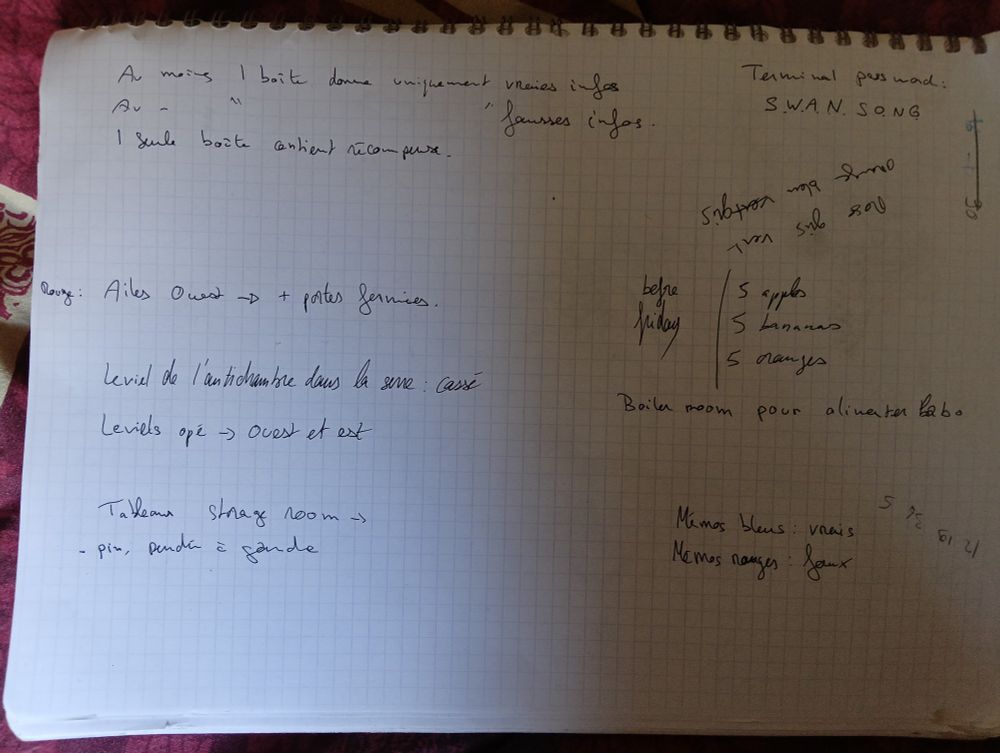 Au moins 1 boîte donne uniquement vraies infos
Au - " " fausses infos.
1 seule boîte contient récompense.
Terminal password:
S.W.A.N. SONG
Rouge: Ailes Ouest → + portes fermées.
Leviel de l'antichambre dans la serre : cassé
Leviels opé → Ouest et est
before friday
5 apples
5 bananas
5 oranges
Boiler room pour alimenter Labo
Tableaux storage room →
- pin,
Mémos bleus : vrais
Mémos rouges : faux